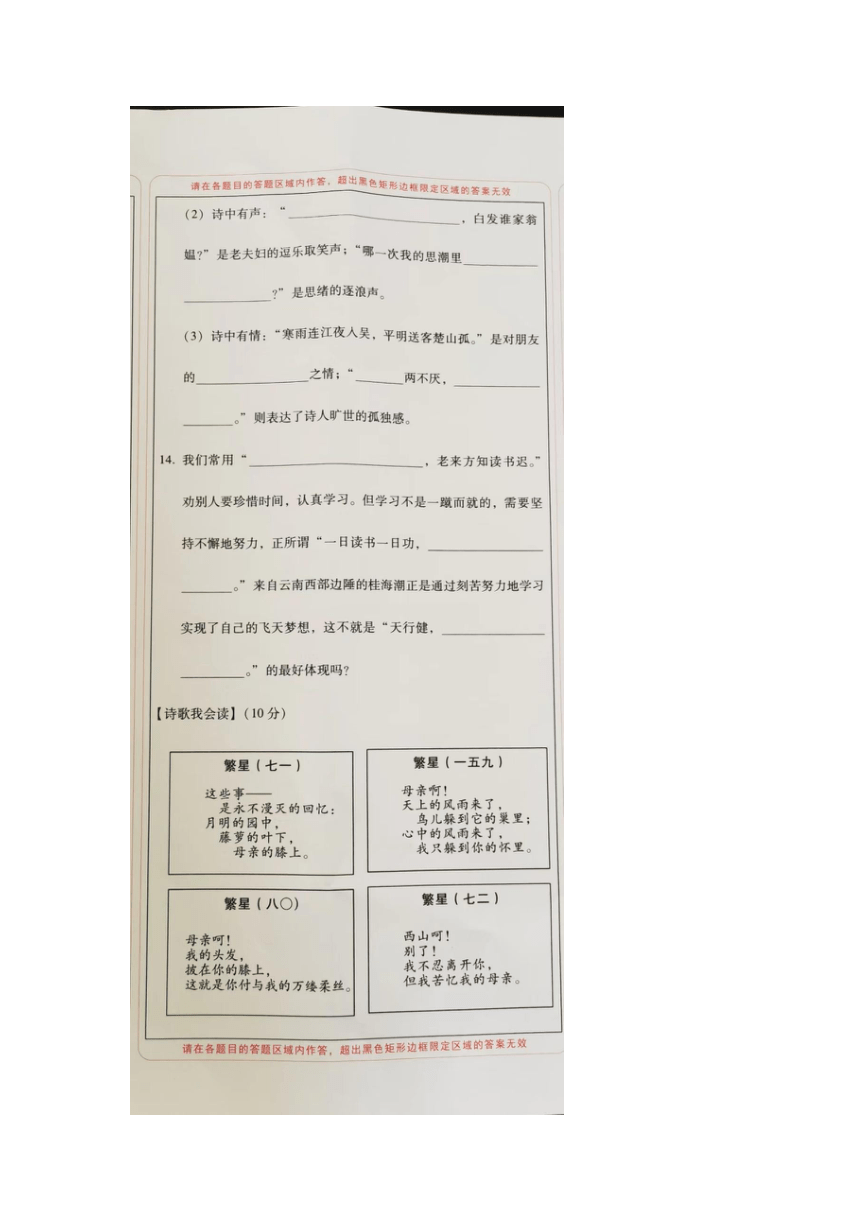 请在各题目的答题区域内作答，超出黑色矩形边框限定区域的答案无效
(2) 诗中有声：“____________________，白发谁家翁
媪?”是老夫妇的逗乐取笑声；“哪一次我的思潮里________
__________?”是思绪的逐浪声。
(3) 诗中有情：“寒雨连江夜入吴，平明送客楚山孤。”是对朋友
的____________之情；“_____两不厌，_________
_____。”则表达了诗人旷世的孤独感。
14. 我们常用“____________________，老来方知读书迟。”
劝别人要珍惜时间，认真学习。但学习不是一蹴而就的，需要坚
持不懈地努力，正所谓“一日读书一日功，____________
_____。”来自云南西部边陲的桂海潮正是通过刻苦努力地学习
实现了自己的飞天梦想，这不就是“天行健，___________
_______。”的最好体现吗?
【诗歌我会读】(10 分)
繁星（七一）
这些事——
是永不漫灭的回忆；
月明的园中，
藤萝的叶下，
母亲的膝上。
繁星（一五九）
母亲啊！
天上的风雨来了，
鸟儿躲到它的巢里；
心中的风雨来了，
我只躲到你的怀里。
繁星（八〇）
母亲呵！
我的头发，
披在你的膝上，
这就是你付与我的万缕柔丝。
繁星（七二）
西山呵！
别了！
我不忍离开你，
但我苦忆我的母亲。
请在各题目的答题区域内作答，超出黑色矩形边框限定区域的答案无效